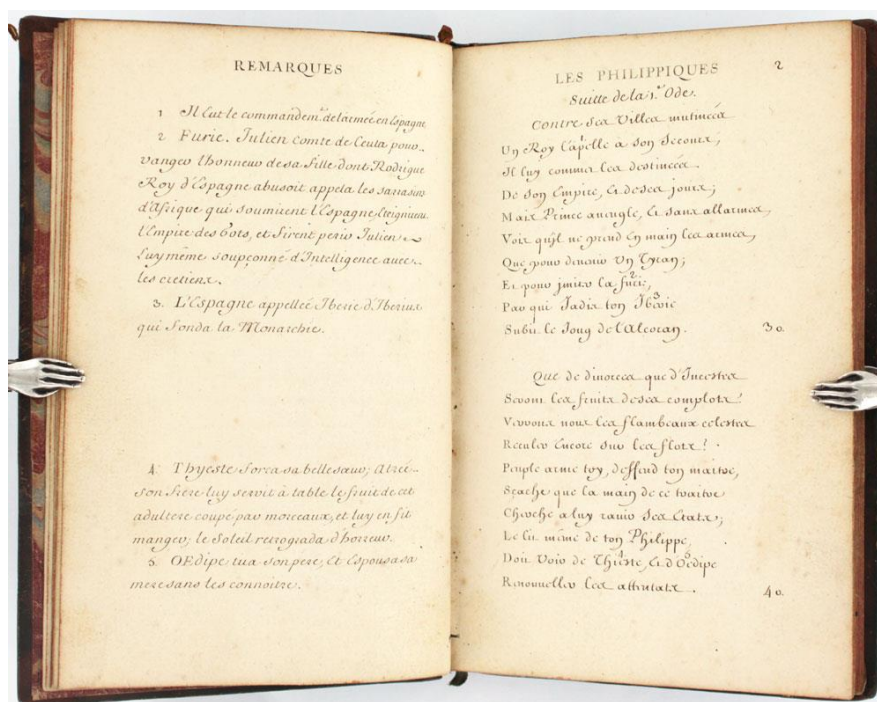 REMARQUES
1 Il Eut le commandemt. de larmée en Espagne
2 Furie. Julien comte de Ceuta pour
vanger lhonneur de sa fille dont Rodrigue
Roy d'Espagne abusoit appela les sarrasins
d'Afrique qui soumirent l'Espagne, Eteignirent
l'Empire des Gots, et firent perir Julien
Luy même soupçonné d'Intelligence avec
les cretiens.
3. L'Espagne appellée Iberie d'Iberius
qui fonda la Monarchie.
4. Thyeste força sa belle sœur; Atrée
son frere luy servit à table le fruit de cet
adultere coupé par morceaux, et luy en fit
manger; le Soleil retrograda d'horreur.
5. OEdipe tua son pere, Et Espousa sa
mere sans les connoitre.
LES PHILIPPIQUES 2
Suitte de la 1e. Ode.
Contre des Villes mutinées
Un Roy l'apelle a son Secours;
Il luy commet les destinées
De son Empire, Et de ses jours;
Mais Prince aveugle, Et sans allarmes,
Voir qu'jl ne prend En main les armes,
Que pour devenir Un Tyran;
Et pour jmiter la furie, 2
Par qui Jadis ton Iberie 3
Subit le Joug de l'Alcoran. 30.
Que de divorces que d'Incestes
Seront les fruits de ses complots!
Verrons nous les flambeaux celestes
Reculer Encore sur les flots!
Peuple arme toy, deffend ton maitre,
Sçache que la main de ce traitre
Cherche a luy ravir ses Etats;
Le lit même de ton Philippe,
Doit Voir de Thieste, Et d'Oedipe
Renouveller les attentats. 40.